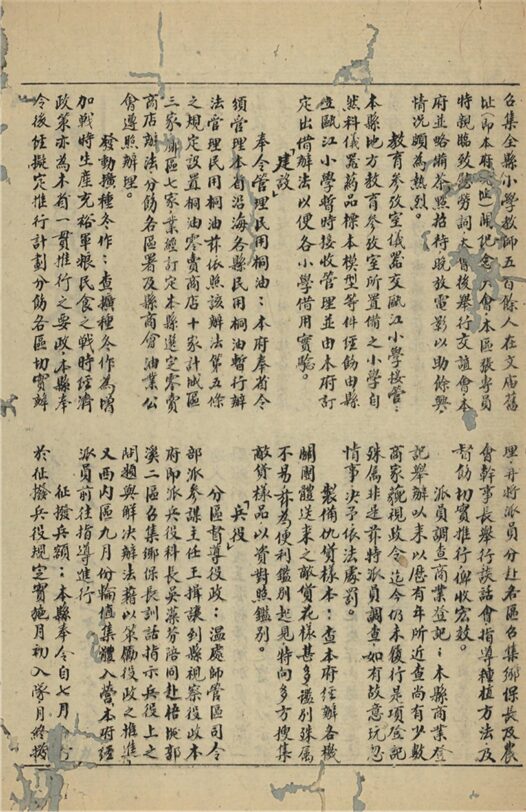 召集全縣小學教師五百餘人在文廟舊
址(即本府 址)開紀念大會本區張專員
特親臨致 勞詞大會後舉行交誼會本
府並略備茶點招待晚放電影以助餘興
情況頗為熱烈。
教育參攷室儀器交甌江小學接管:
本縣地方教育參攷室所置備之小學自
然科儀器药品標本模型等件經飭由縣
立甌江小學暫時接收管理並由本府訂
定出借辦法以便各小學借用實驗。
「建設」
奉令管理民用桐油:本府奉省令
頒管理本省沿海各縣民用桐油暫行辦
法管理民用桐油茲依照該辦法第五條
之規定設置桐油零賣商店十家計城區
三家鄉區七家業經訂定本縣選定零賣
商店辦法分飭各區署及縣商會油業公
會遵照辦理。
發動擴種冬作:查擴種冬作為增
加戰時生產充裕軍粮民食之戰時經濟
政策亦為本省一貫推行之要政本縣奉
令後經擬定推行計劃分飭各區切實辦
理并將派員分赴各區召集鄉保長及農
會幹事長舉行談話會指導種植方法及
督飭切實推行俾收宏效。
派員調查商業登記:本縣商業登
記舉辦以來以歷有年所近查尚有少數
商家藐視政令迄今仍未復行是項登記
殊屬非是茲特派員調查如有故意玩忽
情事決予依法處罰。
製備仇貨樣本:查本府經辦各機
關團體送來之敵貨花樣甚多鑑別殊屬
不易茲為便利鑑別起見特向多方搜集
敵貨樣品以資對照鑑別。
「兵役」
分區督導役政:溫處師管區司令
部派參謀主任王揖讓到縣視察役政本
府即派兵役科長吳藻芬陪同赴梧埏郭
溪二區召集鄉保長訓話指示兵役上之
問題與解決辦法藉以策勵役政之推進
又西內區九月份輪值集體入營本府經
派員前往指導進行
征撥兵額:本縣奉令自七月 
於征撥兵役規定實施月初入隊月終撥